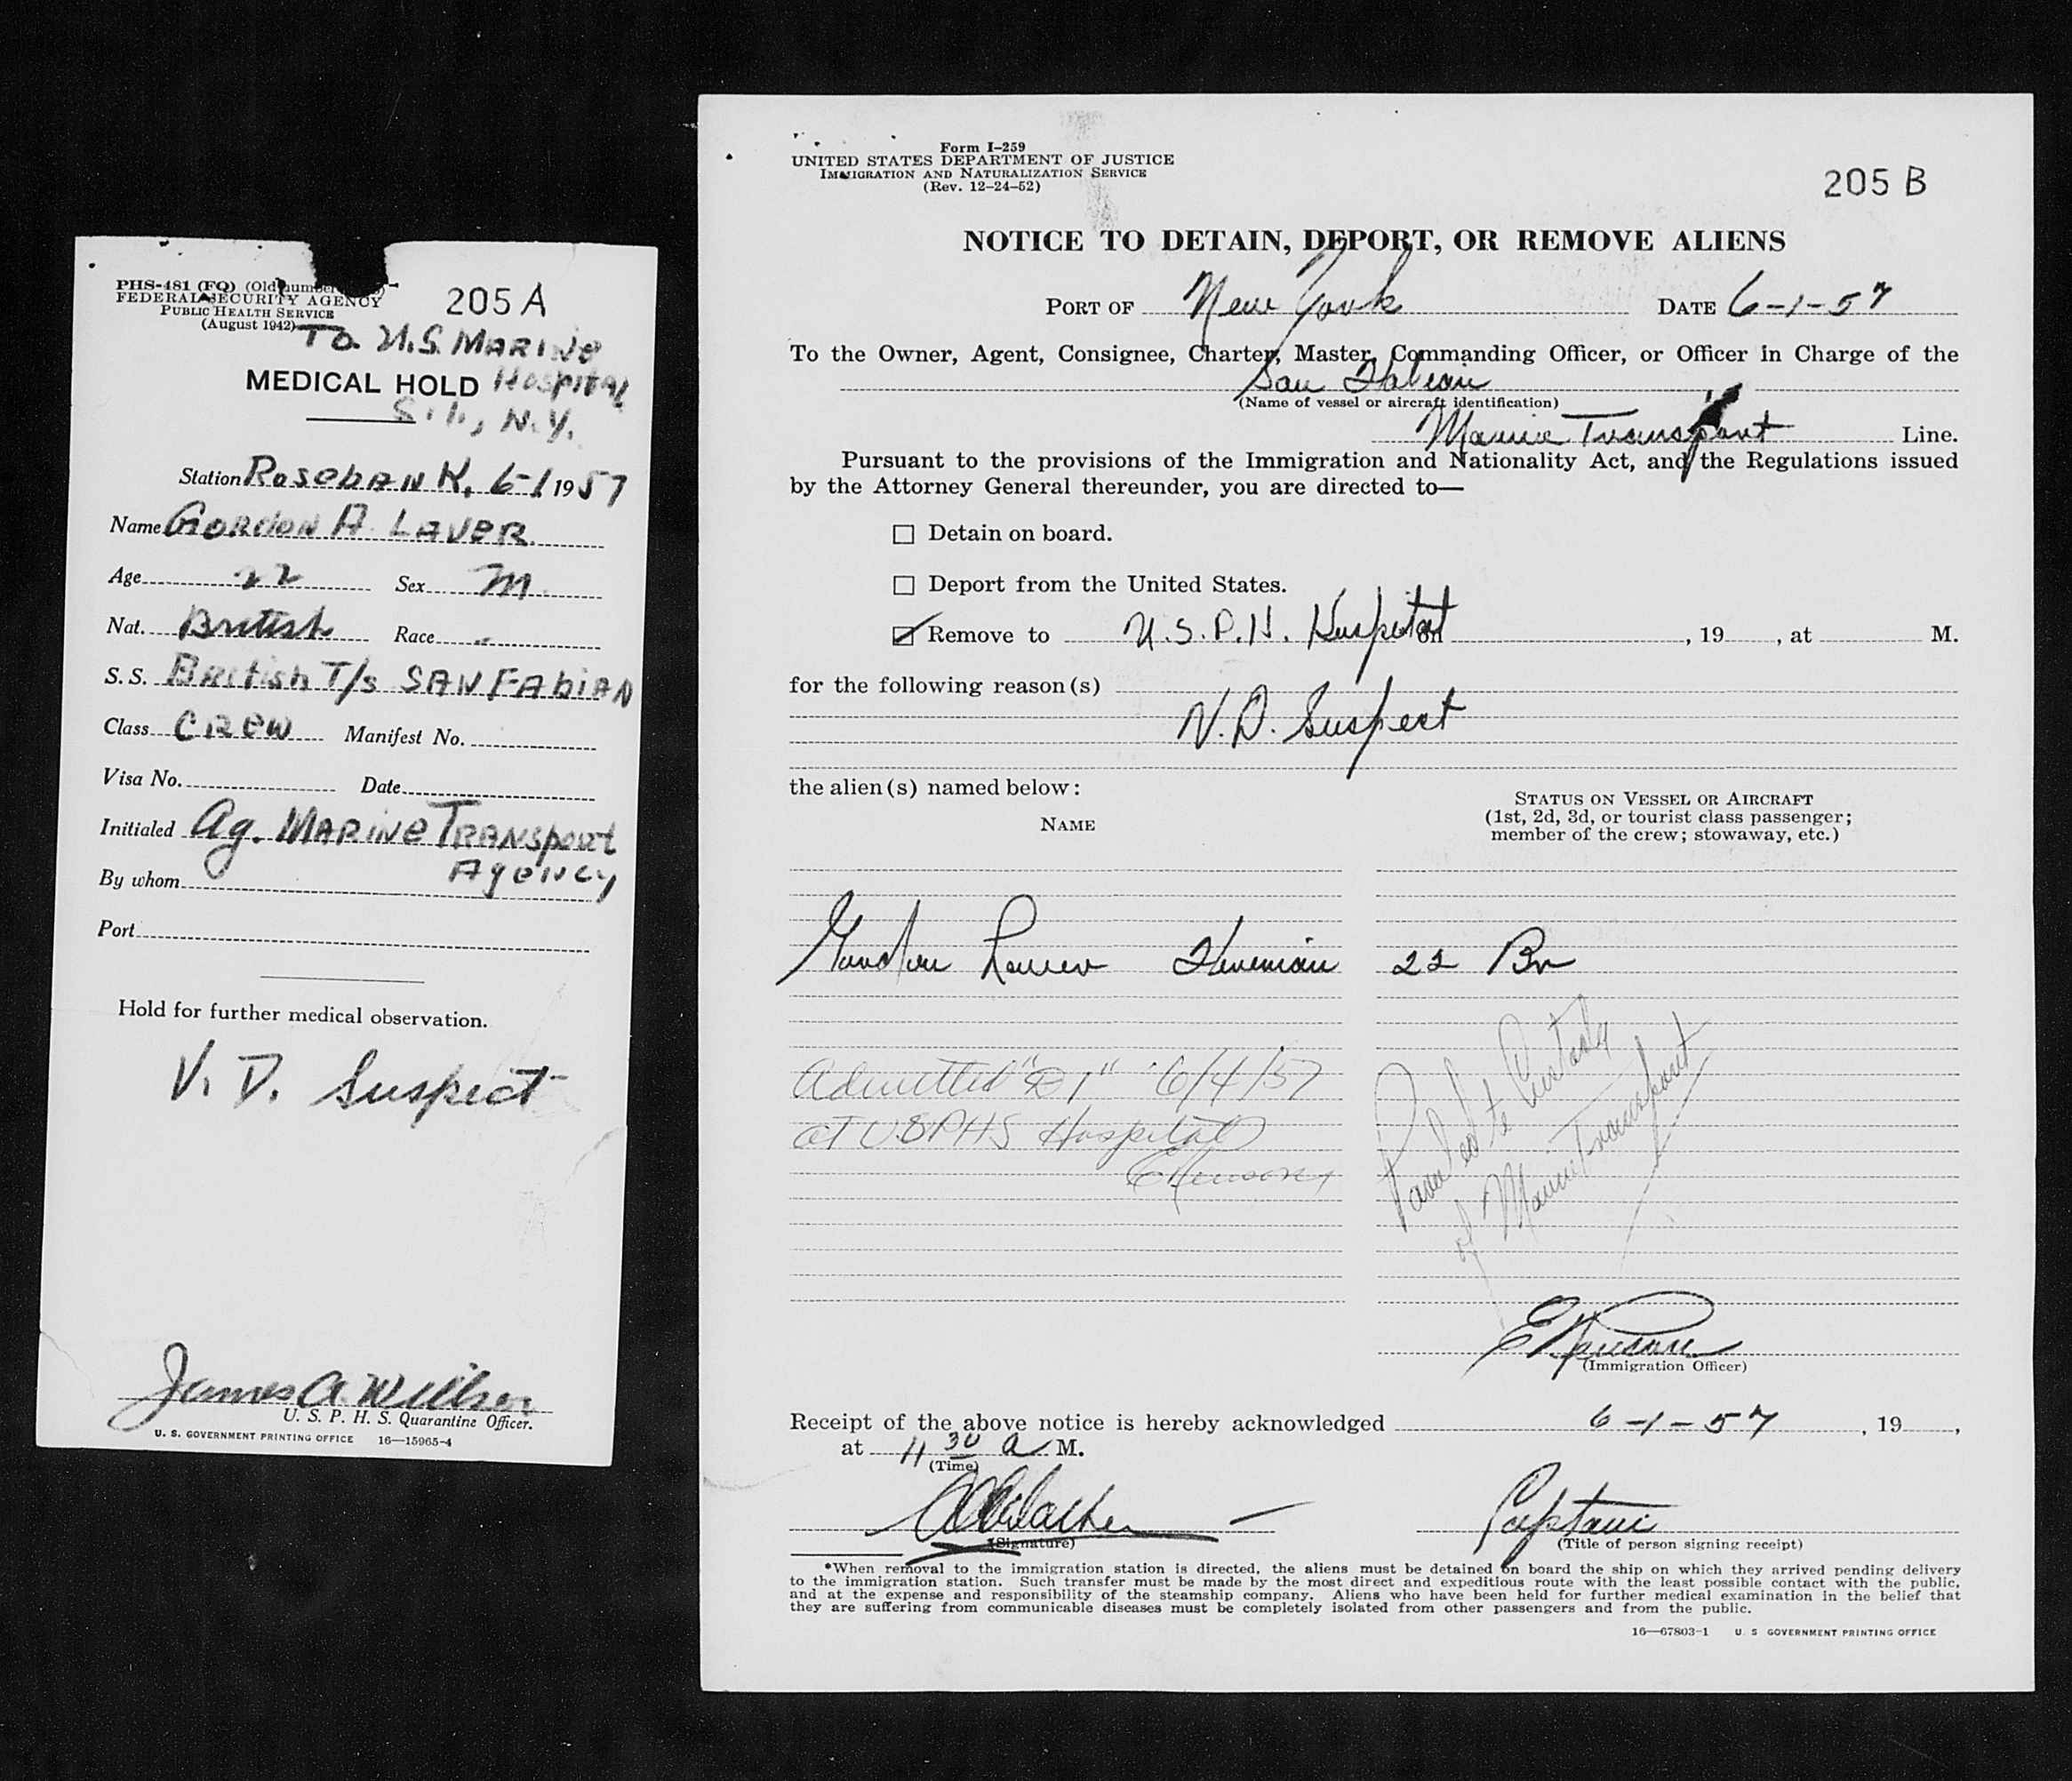 PHS-481 (FQ) (Old number
FEDERAL SECURITY AGENCY
PUBLIC HEALTH SERVICE
(August 1942)
205 A
TO U.S. MARINE
MEDICAL HOLD Hospital
S.I., N.Y.
Station Rosebank, 6-1 1957
Name GORDON A. LAVER
Age 22 Sex M.
Nat. British Race -
S. S. British T/s SAN FABIAN
Class CREW Manifest No.
Visa No. Date
Initialed Ag. MARINE TRANSport
By whom Agency
Port
Hold for further medical observation.
V. D. Suspect
James A.
U. S. P. H. S. Quarantine Officer.
U. S. GOVERNMENT PRINTING OFFICE 16—15965-4
Form I-259
UNITED STATES DEPARTMENT OF JUSTICE
IMMIGRATION AND NATURALIZATION SERVICE
(Rev. 12-24-52)
205 B
NOTICE TO DETAIN, DEPORT, OR REMOVE ALIENS
PORT OF New York DATE 6-1-57
To the Owner, Agent, Consignee, Charter, Master, Commanding Officer, or Officer in Charge of the
San Fabian
(Name of vessel or aircraft identification)
Marine Transport Line.
Pursuant to the provisions of the Immigration and Nationality Act, and the Regulations issued
by the Attorney General thereunder, you are directed to—
Detain on board.
Deport from the United States.
Remove to U.S.P.H. Hospital on , 19 , at M.
for the following reason(s)
V.D. Suspect
the alien(s) named below:
NAME
STATUS ON VESSEL OR AIRCRAFT
(1st, 2d, 3d, or tourist class passenger;
member of the crew; stowaway, etc.)
Gordon Laver Fireman 22 Br
Admitted "D1" 6/4/57
at USPHS Hospital
Paroled to Custody
of Marine Transport
(Immigration Officer)
Receipt of the above notice is hereby acknowledged 6-1-57 , 19 ,
at 11 30 a M.
(Time)
Captain
(Signature)
(Title of person signing receipt)
*When removal to the immigration station is directed, the aliens must be detained on board the ship on which they arrived pending delivery
to the immigration station. Such transfer must be made by the most direct and expeditious route with the least possible contact with the public,
and at the expense and responsibility of the steamship company. Aliens who have been held for further medical examination in the belief that
they are suffering from communicable diseases must be completely isolated from other passengers and from the public.
16—67803-1 U. S. GOVERNMENT PRINTING OFFICE